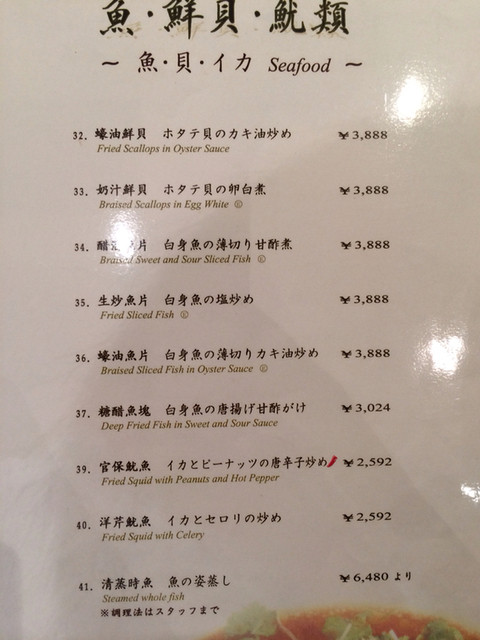 魚・鮮貝・魷類
～ 魚・貝・イカ Seafood ～
32. 蠔油鮮貝 ホタテ貝のカキ油炒め ¥3,888
Fried Scallops in Oyster Sauce
33. 奶汁鮮貝 ホタテ貝の卵白煮 ¥3,888
Braised Scallops in Egg White Ⓔ
34. 醋 片 白身魚の薄切り甘酢煮 ¥3,888
Braised Sweet and Sour Sliced Fish Ⓔ
35. 生炒魚片 白身魚の塩炒め ¥3,888
Fried Sliced Fish Ⓔ
36. 蠔油魚片 白身魚の薄切りカキ油炒め ¥3,888
Braised Sliced Fish in Oyster Sauce Ⓔ
37. 糖醋魚塊 白身魚の唐揚げ甘酢がけ ¥3,024
Deep Fried Fish in Sweet and Sour Sauce
39. 官保魷魚 イカとピーナッツの唐辛子炒め ¥2,592
Fried Squid with Peanuts and Hot Pepper
40. 洋芹魷魚 イカとセロリの炒め ¥2,592
Fried Squid with Celery
41. 清蒸時魚 魚の姿蒸し ¥6,480 より
Steamed whole fish
※調理法はスタッフまで